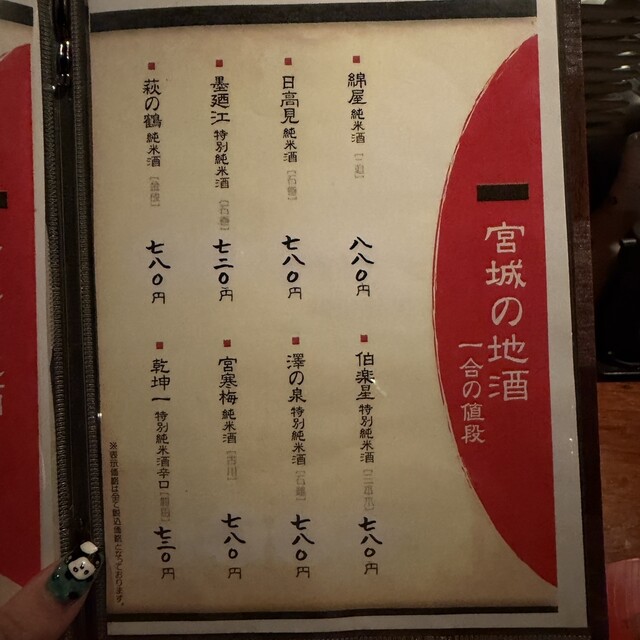 宮城の地酒
一合の値段
綿屋 純米酒
八八〇円
日高見 純米酒 [石巻]
七八〇円
墨廼江 特別純米酒 [石巻]
七二〇円
萩の鶴 純米酒 [金成]
七八〇円
伯楽星 特別純米酒 [三本木]
七八〇円
澤の泉 特別純米酒 [石越]
七八〇円
宮寒梅 純米酒 [古川]
七八〇円
乾坤一 特別純米酒辛口
七三〇円
※表示価格は全て税込価格になっております。